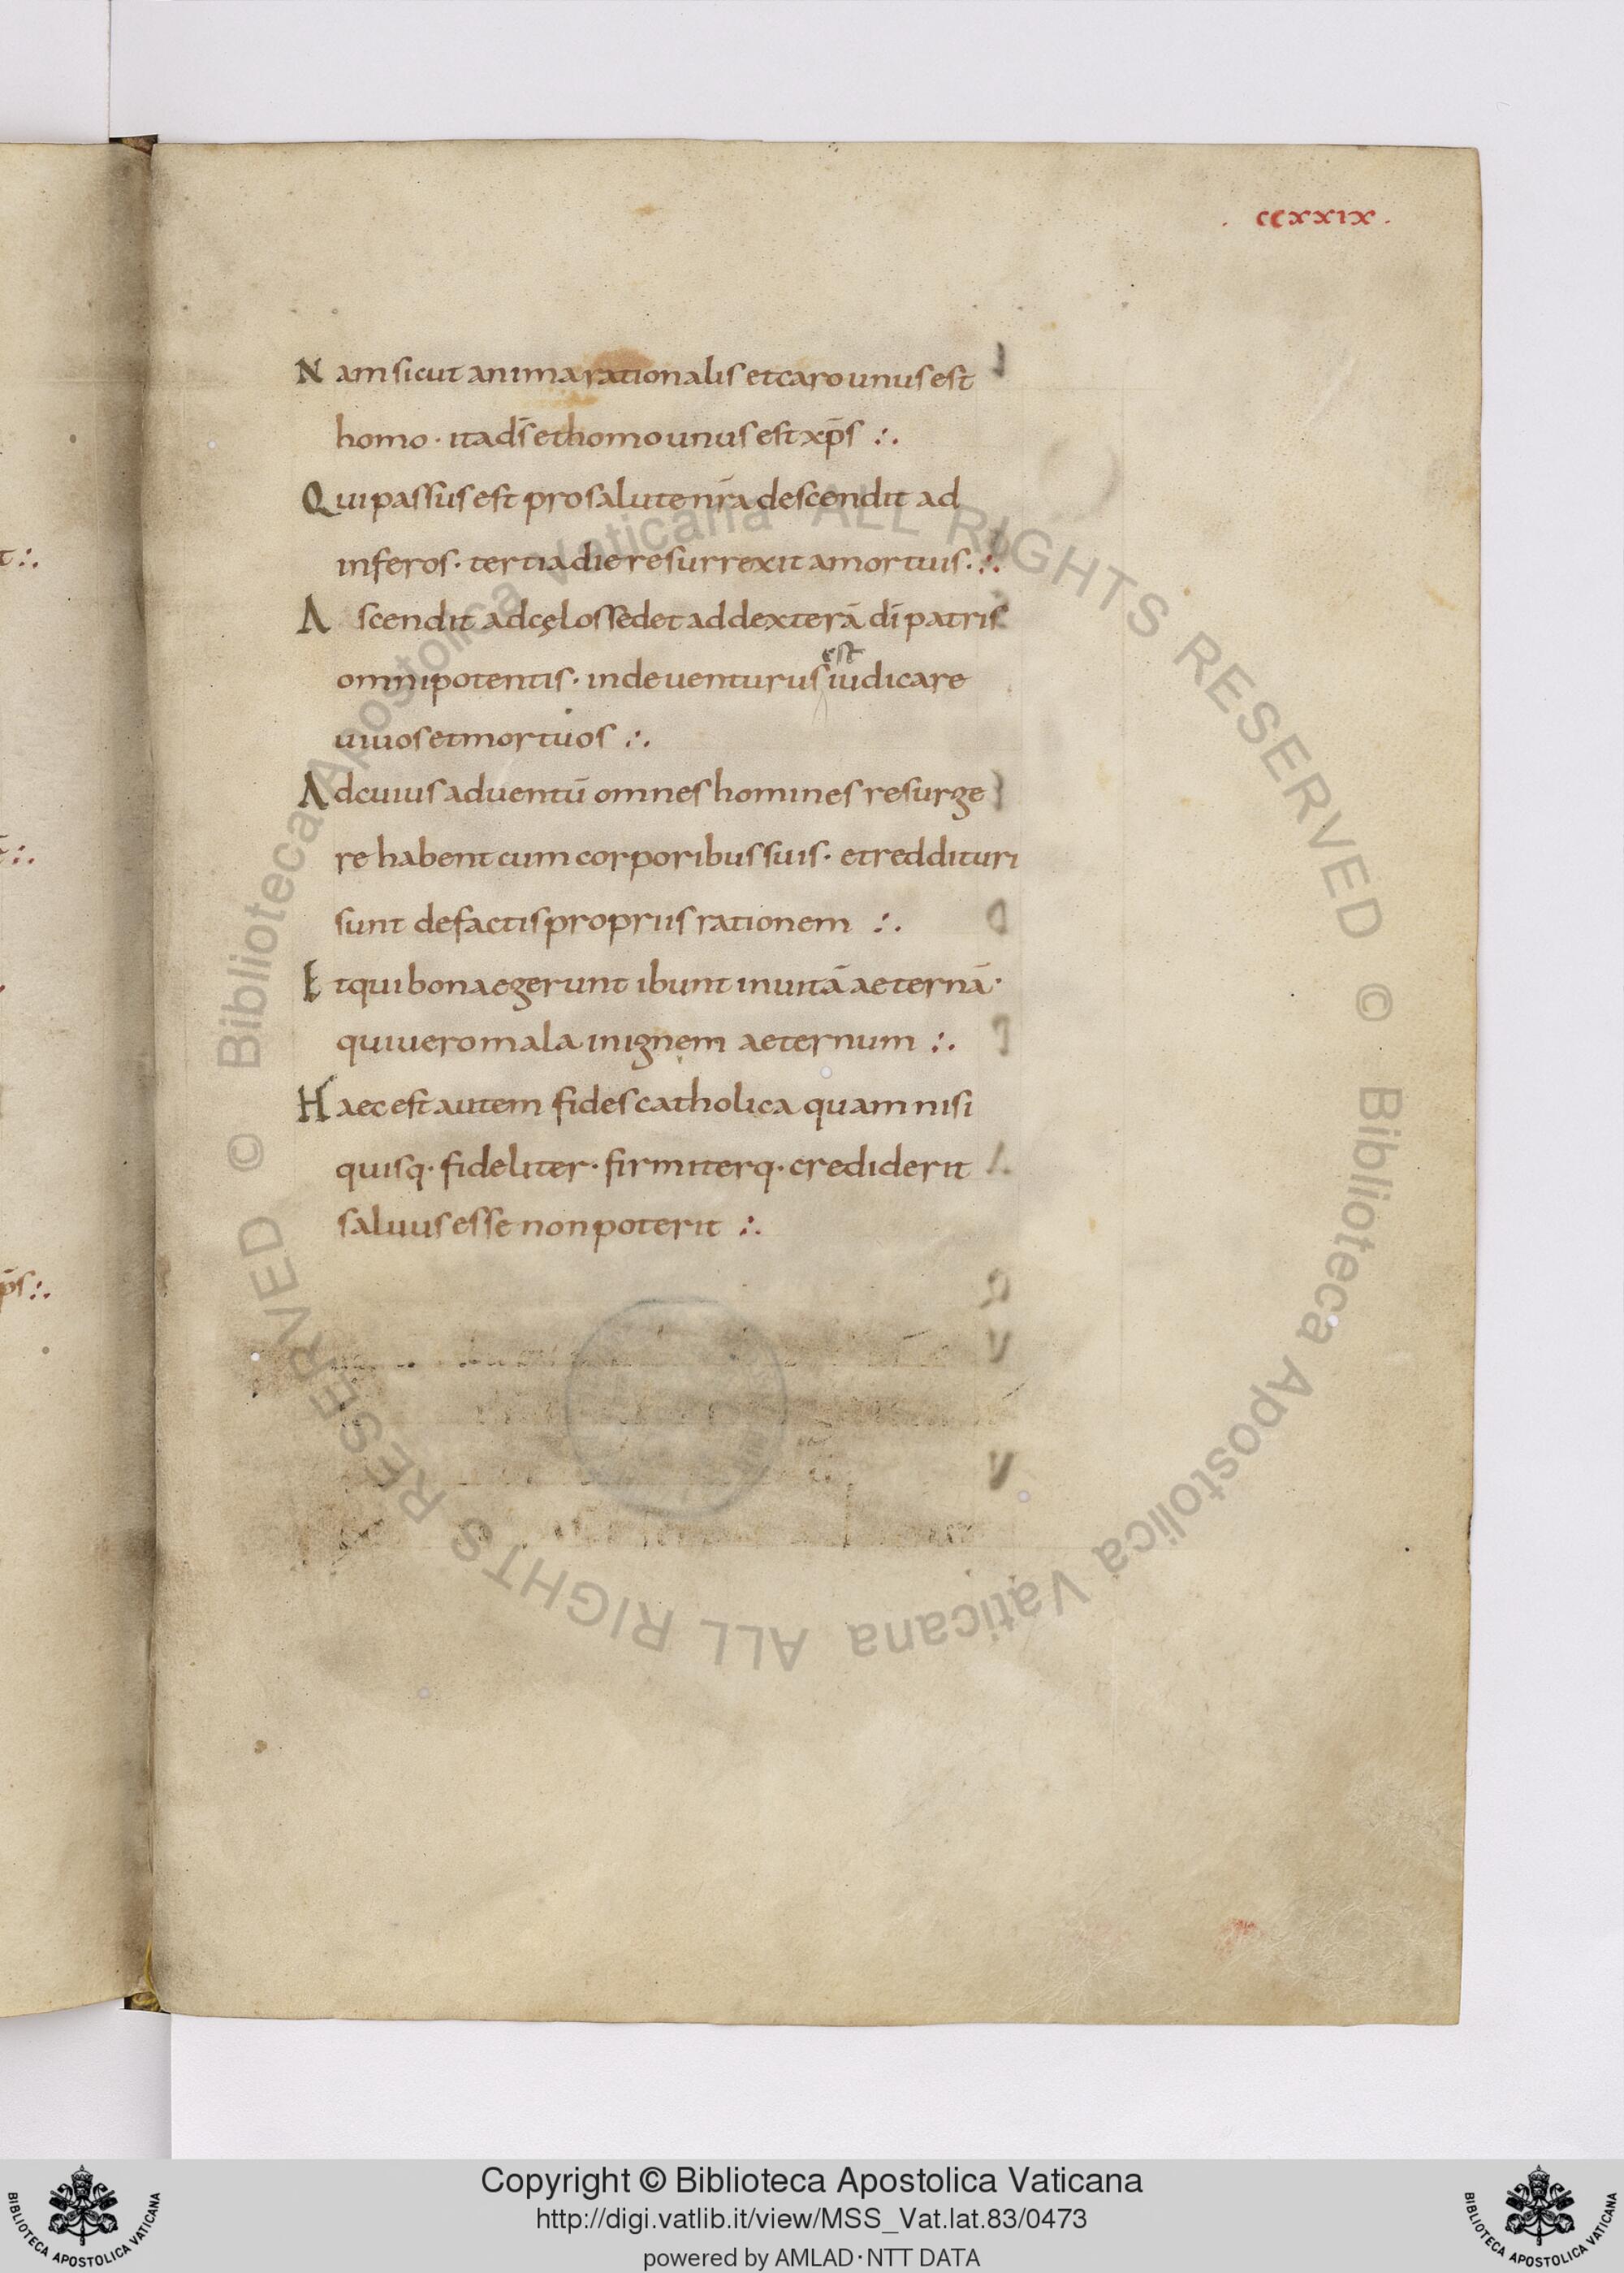 . ccxxix .
Nam sicut anima rationalis et caro unus est
homo · ita d̄s et homo unus est xp̄s ∴
Qui passus est pro salute nr̄a descendit ad
inferos · tertia die resurrexit a mortuis · ∴
Ascendit ad cęlos sedet ad dexterā dī patris
est
omnipotentis · inde uenturus iudicare
uiuos et mortuos ∴
Ad cuius aduentū omnes homines resurge
re habent cum corporibus suis · et reddituri
sunt de factis propriis rationem ∴
Et qui bona egerunt ibunt in uitā aeternā ·
qui uero mala in ignem aeternum ∴
Haec est autem fides catholica quam nisi
quisq · fideliter · firmiterq · crediderit
saluus esse non poterit ∴
© Biblioteca Apostolica Vaticana ALL RIGHTS RESERVED
© Biblioteca Apostolica Vaticana ALL RIGHTS RESERVED
Copyright © Biblioteca Apostolica Vaticana
http://digi.vatlib.it/view/MSS_Vat.lat.83/0473
powered by AMLAD·NTT DATA
BIBLIOTECA APOSTOLICA VATICANA
BIBLIOTECA APOSTOLICA VATICANA